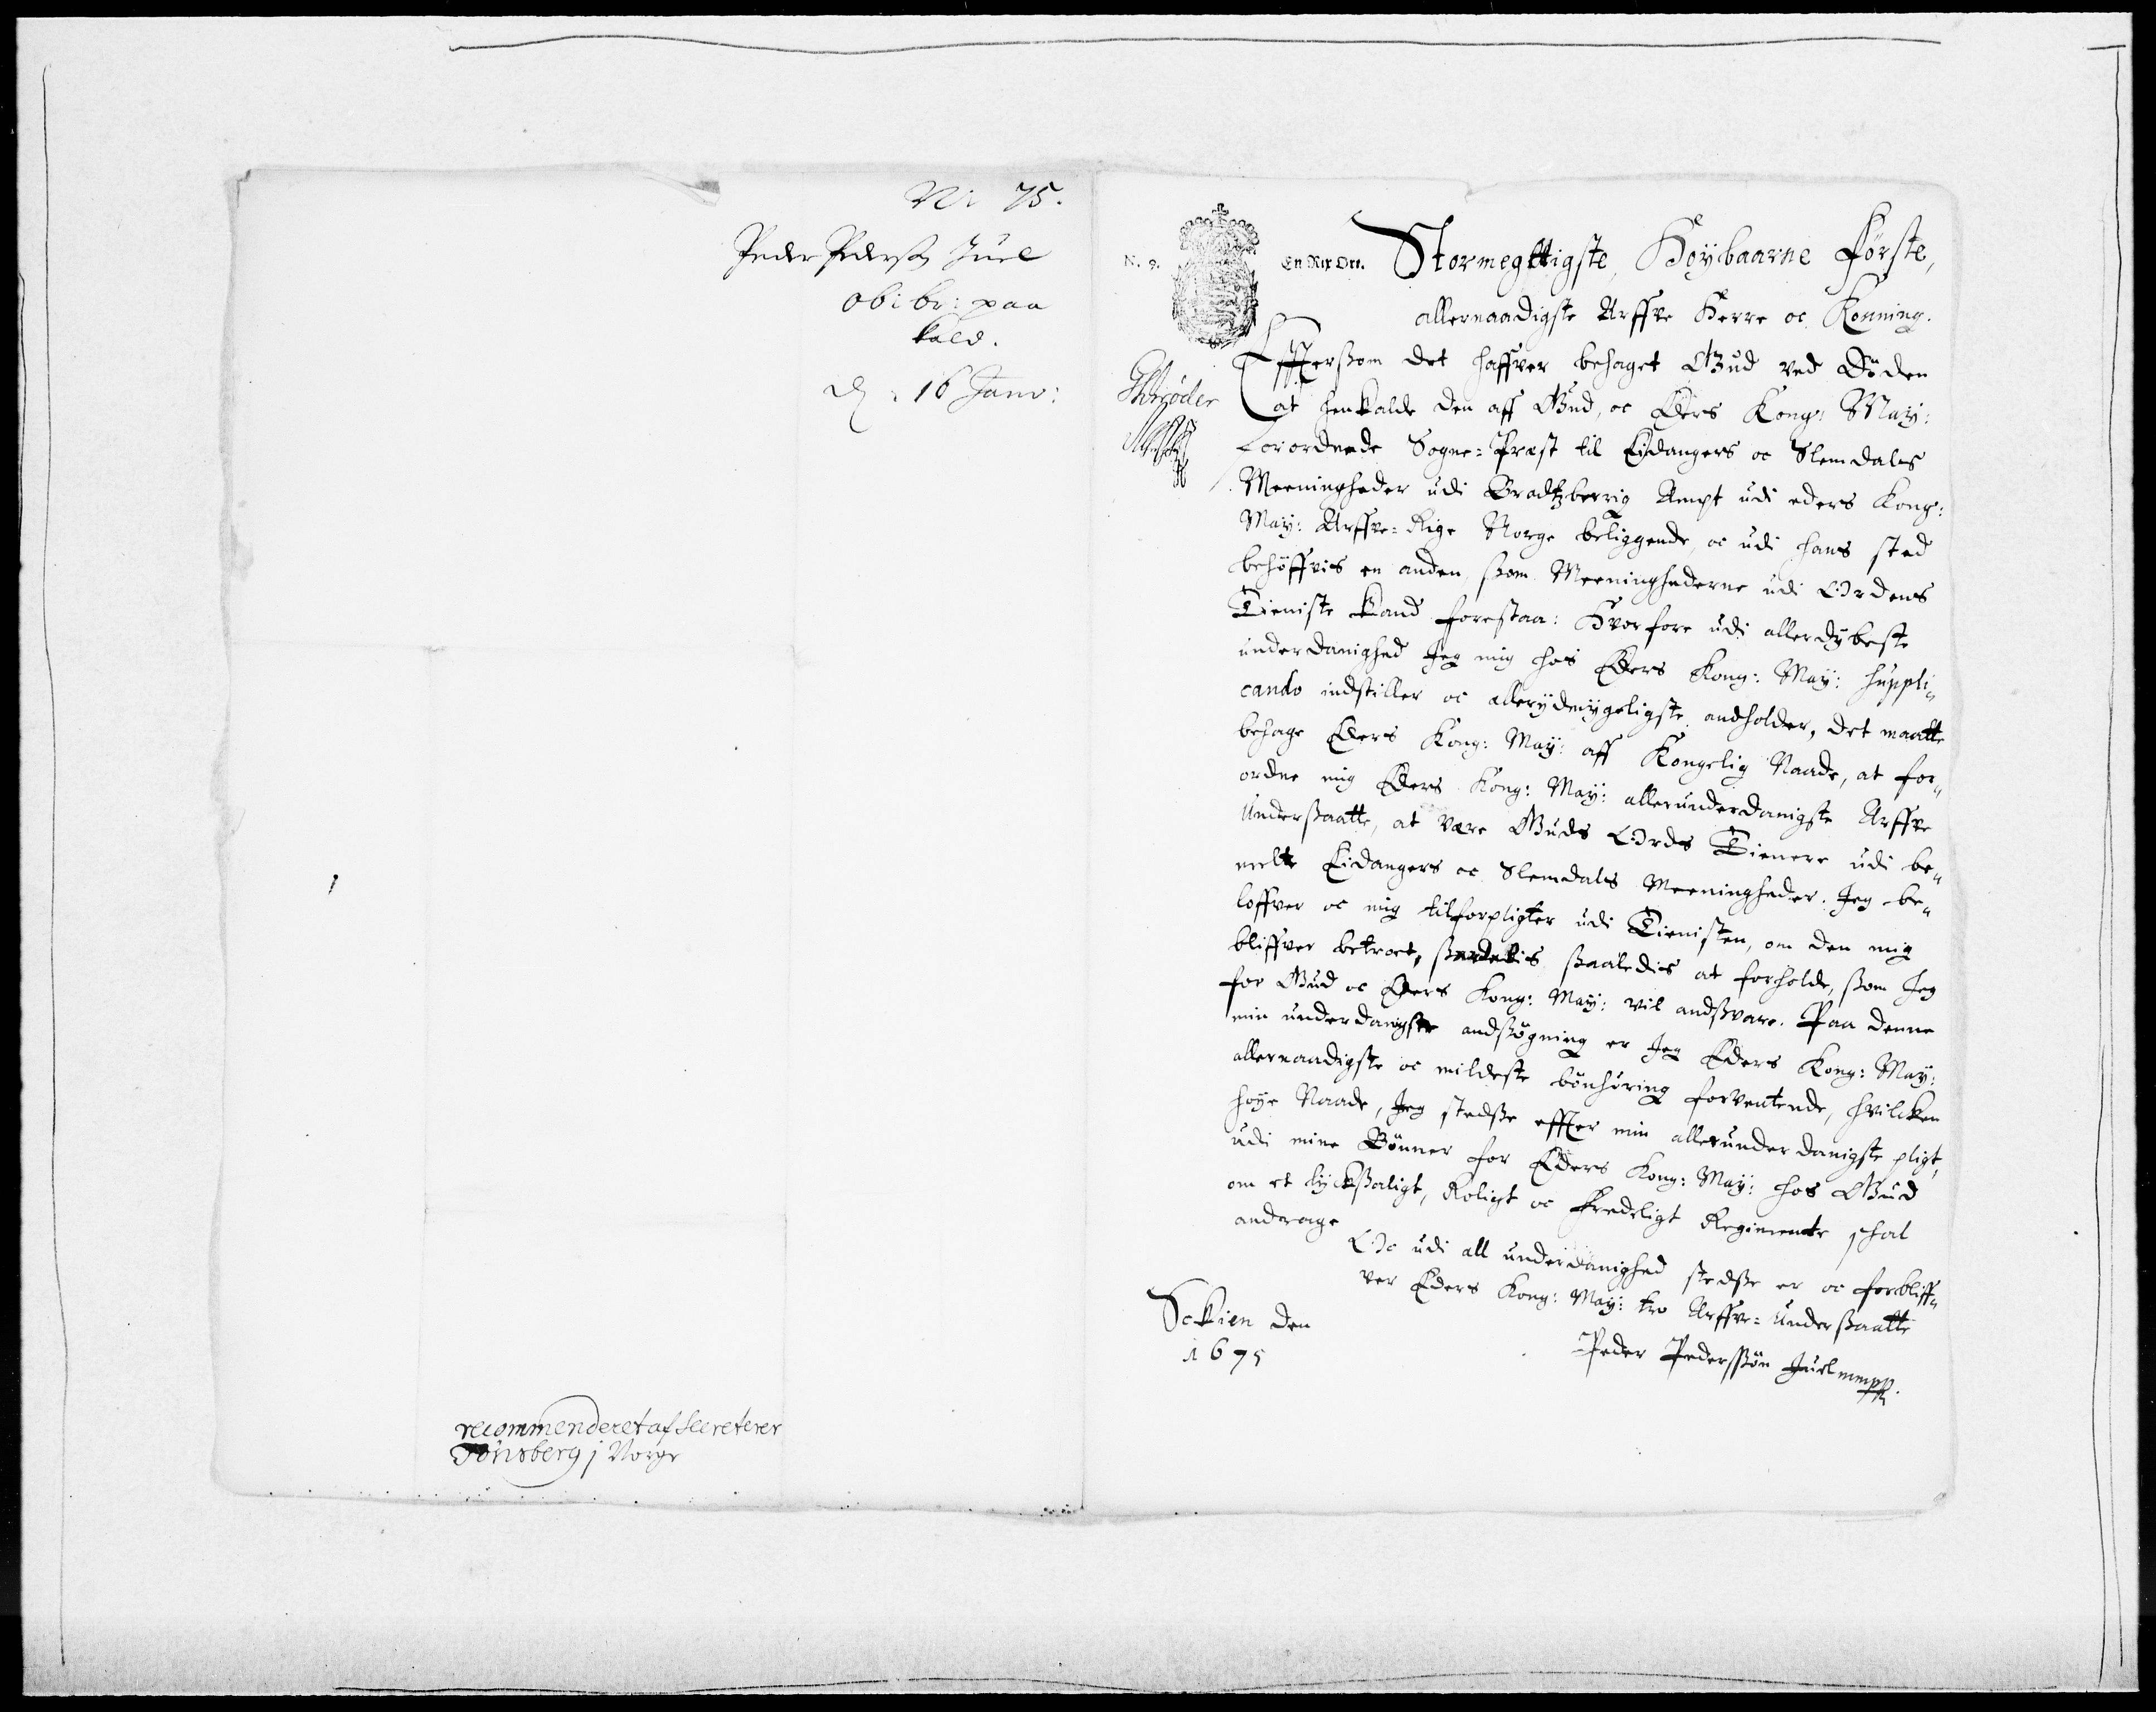 Nr 75.
Peder Pederß Juel
obi br: paa
kald.
d: 16 Janv:
recommenderet af Secreterer
Tönsberg j Norge
N. 9.
En Rix Ort.
Stormegttigste, Høybaarne Første,
allernaadigste Arffve Herre oc Konning.
Effterßom det haffver behaget Gud ved Döden
at henkalde den aff Gud, oc Eders Kong: May:
forordnede Sogne=Præst til Eidangers oc Slemdals
Meenigheder udi Bradtzberrig Ampt udi eders Kong:
May: Arffve=Rige Norge beliggende, oc udi hans sted
behöffvis en anden, ßom Meenighederne udi Ordens
Tieniste kand forestaa: Hvorfore udi allerdybeste
underdanighed Jeg mig hos Eders Kong: May: suppli„
cando indstiller oc allerydmygeligste andholder, det maatte
behage Eders Kong: May: aff Kongelig Naade, at for„
ordne mig Eders Kong: May: allerunderdanigste Arffve
Underßaatte, at være Guds Ords Tienere udi be„
melte Eidangers oc Slemdals Meenigheder. Jeg be„
loffver oc mig tilforpligter udi Tienisten, om den mig
bliffver betroet, ßaaledis at forholde, ßom Jeg
for Gud oc Eders Kong: May: vil andßvare. Paa denne
min underdanigste andßögning er Jeg Eders Kong: May:
allernaadigste oc mildeste bönhöring forventende, hvilcken
höye Naade, Jeg stedße effter min allerunderdanigste pligt,
udi mine Bönner for Eders Kong: May: hos Gud
om et lyckßaligt, Roligt oc Fredeligt Regimente schal
andrage
Oc udi all underdanighed stedße er oc forbliff„
ver Eders Kong: May: tro Arffve=Underßaatte
Sckien den
1675
Peder Pederssøn Juel mmpp.